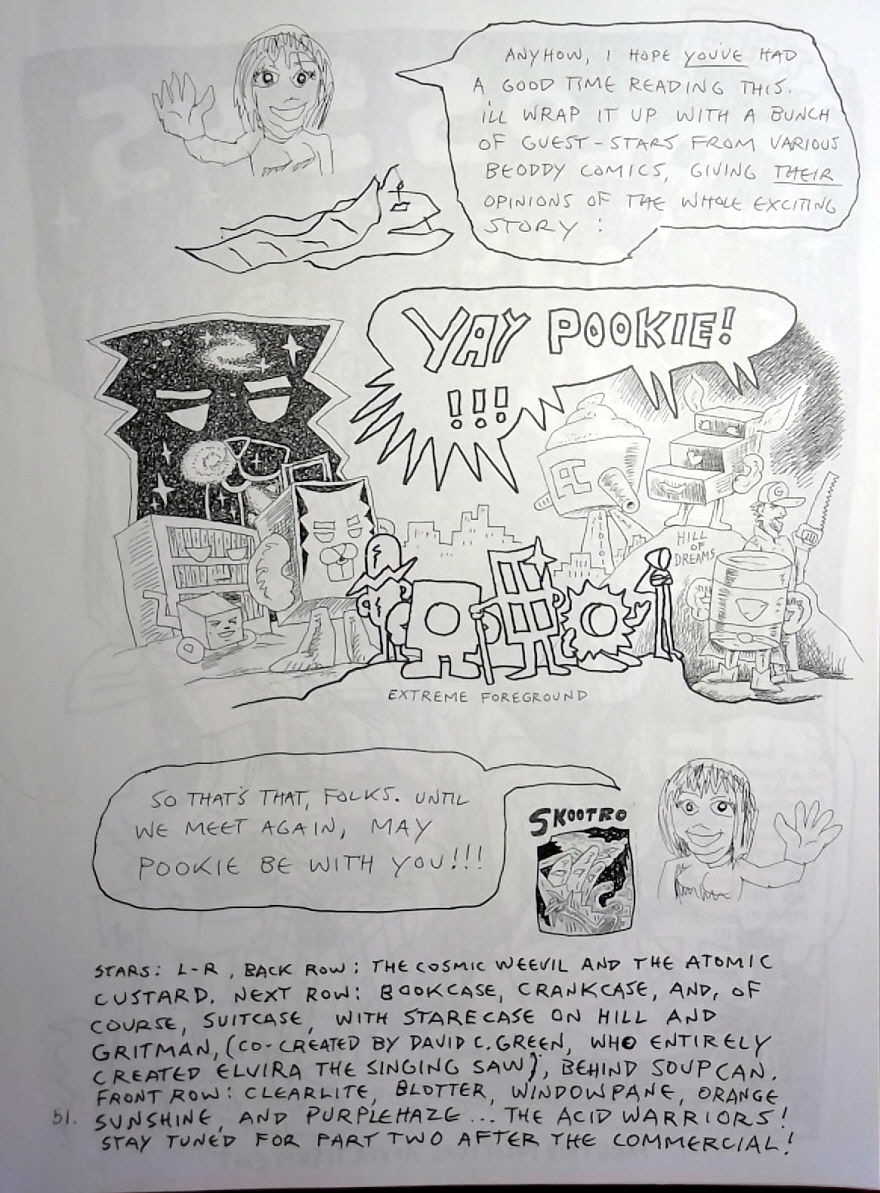 ANYHOW, I HOPE YOU'VE HAD
A GOOD TIME READING THIS.
I'LL WRAP IT UP WITH A BUNCH
OF GUEST-STARS FROM VARIOUS
BEODDY COMICS, GIVING THEIR
OPINIONS OF THE WHOLE EXCITING
STORY :
YAY POOKIE!
!!!
HILL
OF
DREAMS
EXTREME FOREGROUND
SO THAT'S THAT, FOLKS. UNTIL
WE MEET AGAIN, MAY
POOKIE BE WITH YOU!!!
SKOOTRO
STARS: L-R, BACK ROW: THE COSMIC WEEVIL AND THE ATOMIC
CUSTARD. NEXT ROW: BOOKCASE, CRANKCASE, AND, OF
COURSE, SUITCASE, WITH STARECASE ON HILL AND
GRITMAN, (CO-CREATED BY DAVID C. GREEN, WHO ENTIRELY
CREATED ELVIRA THE SINGING SAW), BEHIND SOUPCAN.
FRONT ROW: CLEARLITE, BLOTTER, WINDOWPANE, ORANGE
51. SUNSHINE, AND PURPLEHAZE... THE ACID WARRIORS!
STAY TUNED FOR PART TWO AFTER THE COMMERCIAL!